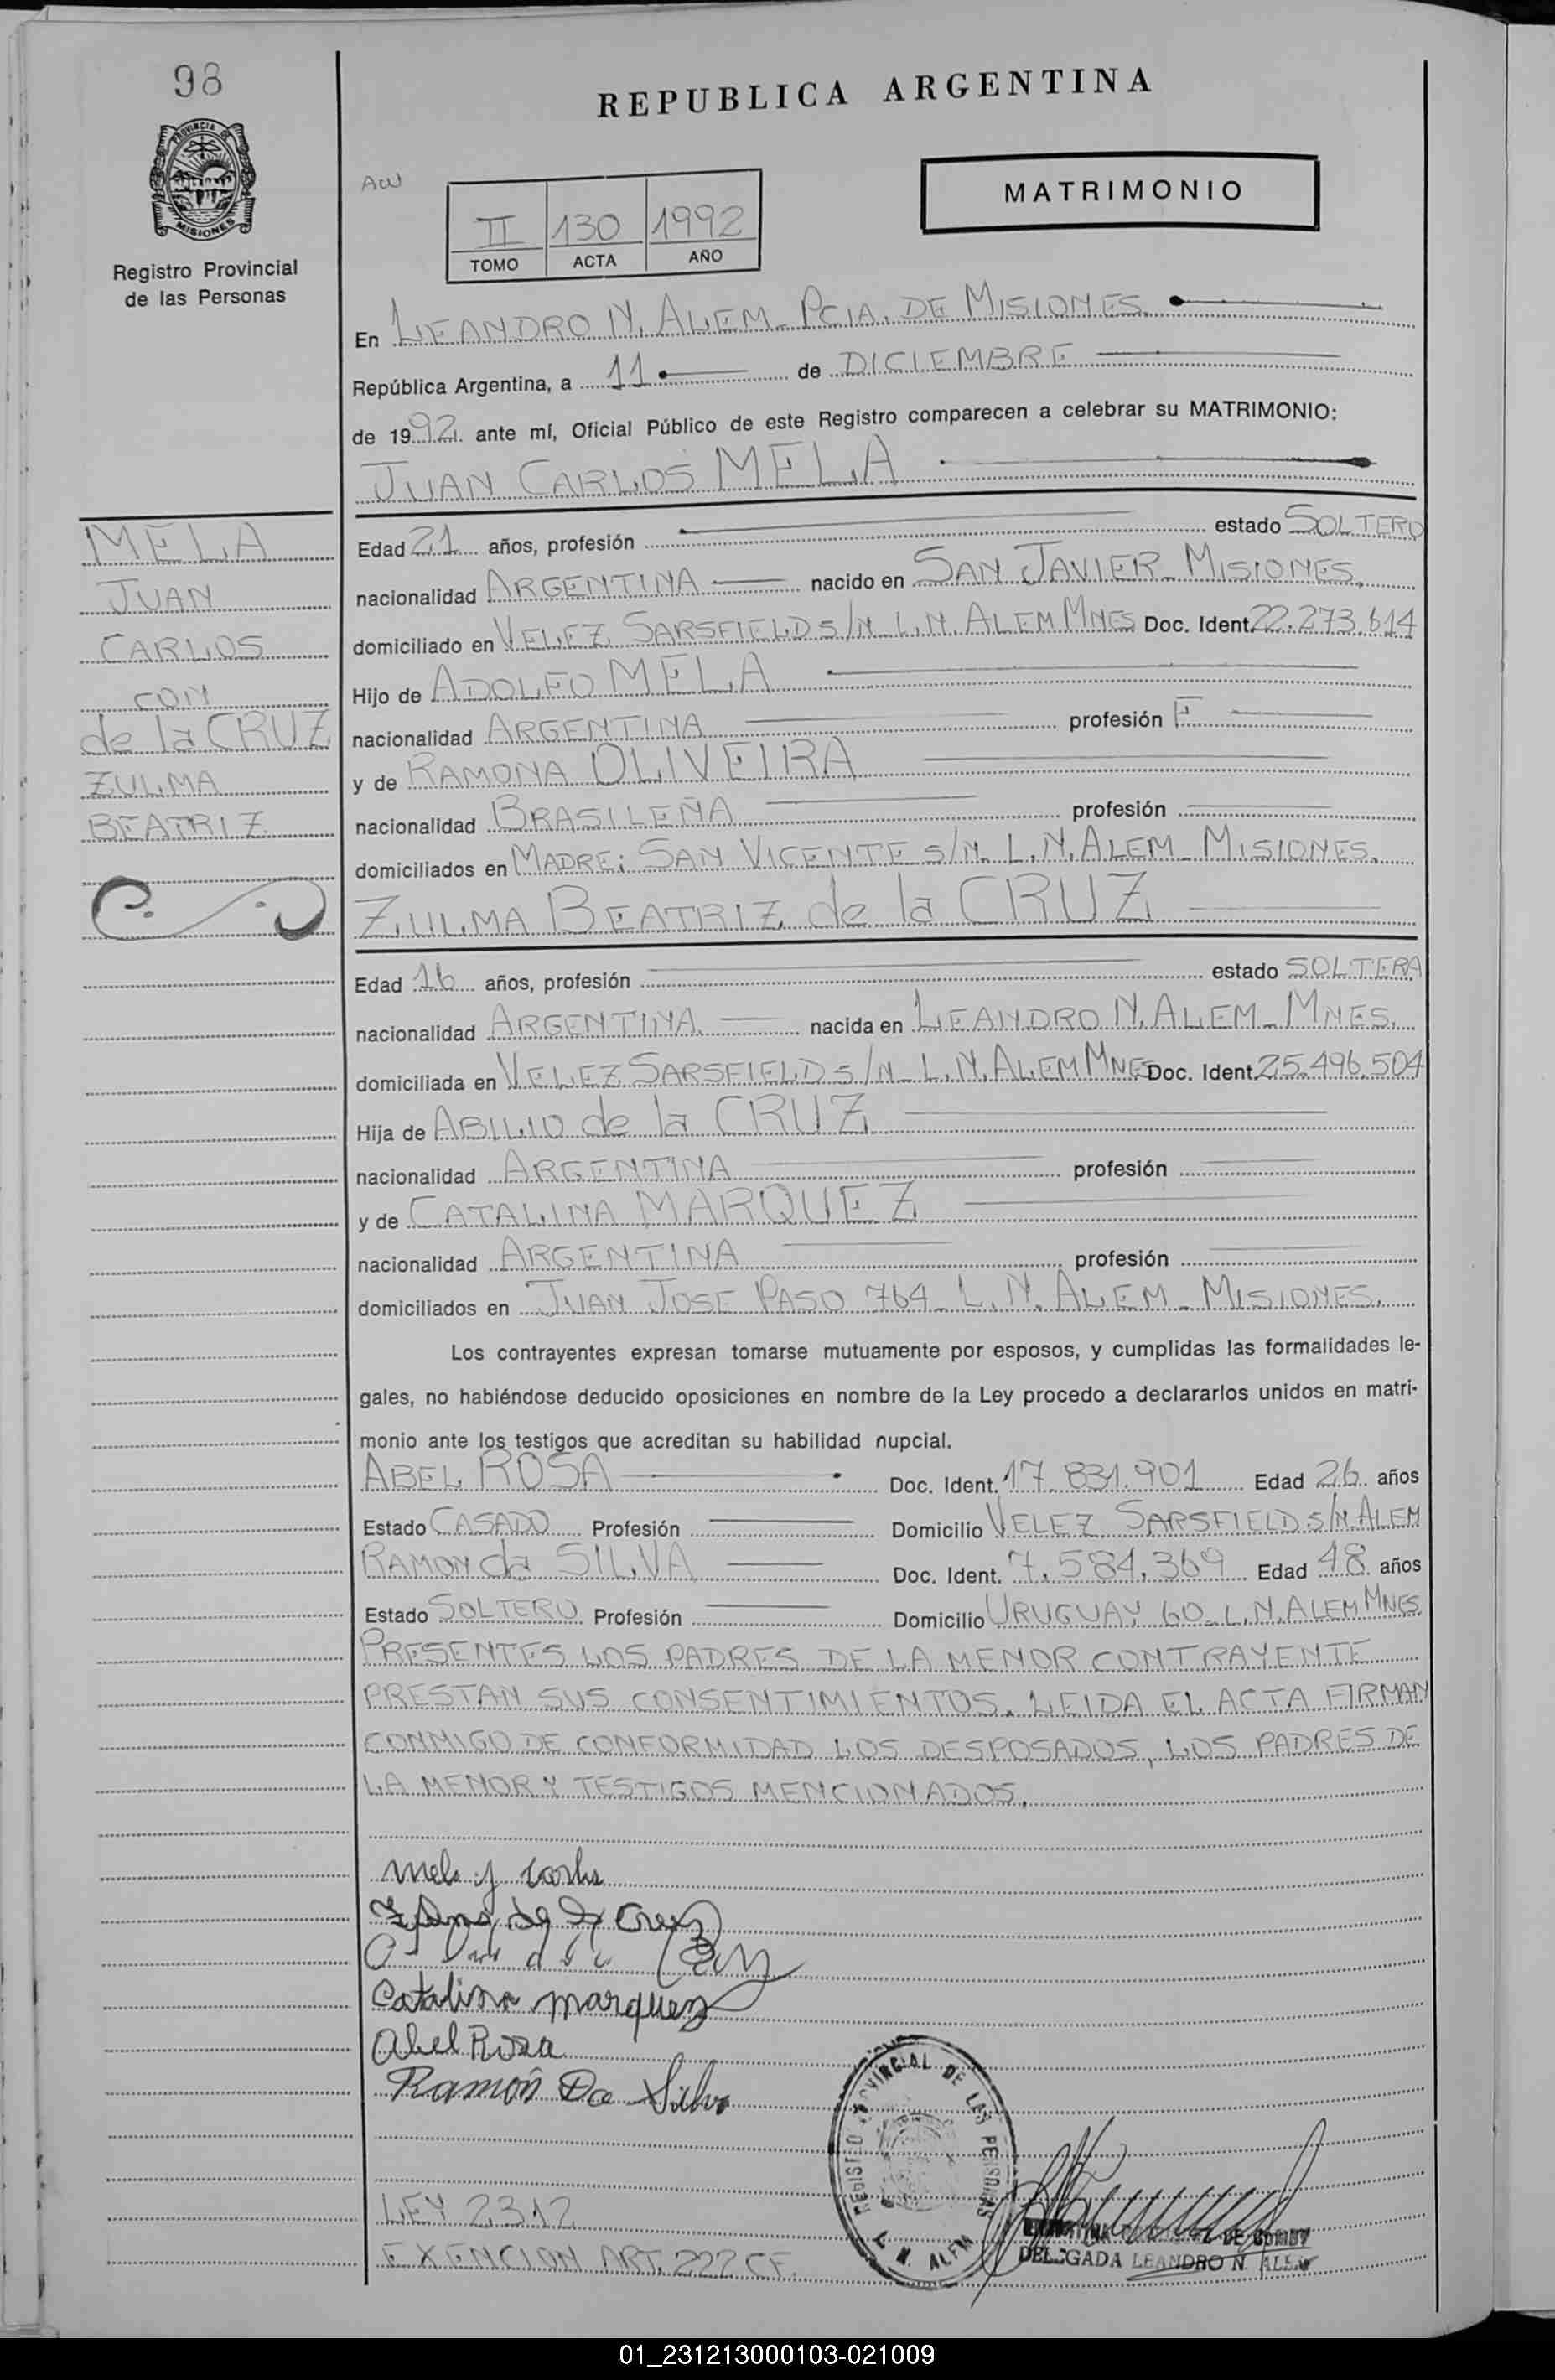 98
REPUBLICA ARGENTINA
PROVINCIA DE
MISIONES
Registro Provincial
de las Personas
MATRIMONIO
II 130 1992
TOMO ACTA AÑO
En LEANDRO N. ALEM - PCIA. DE MISIONES.
República Argentina, a 11 de DICIEMBRE
de 1992 ante mí, Oficial Público de este Registro comparecen a celebrar su MATRIMONIO:
JUAN CARLOS MELA
MELA
JUAN
CARLOS
CON
de la CRUZ
ZULMA
BEATRIZ
Edad 21 años, profesión estado SOLTERO
nacionalidad ARGENTINA nacido en SAN JAVIER - MISIONES.
domiciliado en VELEZ SARSFIELD s/N - L.N. ALEM MNES Doc. Ident. 22.273.614
Hijo de ADOLFO MELA
nacionalidad ARGENTINA profesión F
y de RAMONA OLIVEIRA
nacionalidad BRASILEÑA profesión
domiciliados en MADRE: SAN VICENTE s/N - L.N. ALEM - MISIONES.
ZULMA BEATRIZ de la CRUZ
Edad 16 años, profesión estado SOLTERA
nacionalidad ARGENTINA nacida en LEANDRO N. ALEM - MNES.
domiciliada en VELEZ SARSFIELD s/N - L.N. ALEM MNES Doc. Ident. 25.496.504
Hija de ABILIO de la CRUZ
nacionalidad ARGENTINA profesión
y de CATALINA MARQUEZ
nacionalidad ARGENTINA profesión
domiciliados en JUAN JOSE PASO 764 - L.N. ALEM - MISIONES.
Los contrayentes expresan tomarse mutuamente por esposos, y cumplidas las formalidades le-
gales, no habiéndose deducido oposiciones en nombre de la Ley procedo a declararlos unidos en matri-
monio ante los testigos que acreditan su habilidad nupcial.
ABEL ROSA Doc. Ident. 17.831.901 Edad 26 años
Estado CASADO Profesión Domicilio VELEZ SARSFIELD s/N. ALEM
RAMON da SILVA Doc. Ident. 7.584.369 Edad 48 años
Estado SOLTERO Profesión Domicilio URUGUAY 60 - L.N. ALEM MNES
PRESENTES LOS PADRES DE LA MENOR CONTRAYENTE
PRESTAN SUS CONSENTIMIENTOS. LEIDA EL ACTA FIRMAN
CONMIGO DE CONFORMIDAD LOS DESPOSADOS, LOS PADRES DE
LA MENOR Y TESTIGOS MENCIONADOS.
Mela J Carlos
Zulma de la Cruz
Catalina Marquez
Abel Rosa
Ramón Da Silva
REGISTRO PROVINCIAL DE LAS PERSONAS
L. N. ALEM
LEY 2312
EXENCION ART. 222 CF.
DELEGADA LEANDRO N. ALEM
01_231213000103-021009